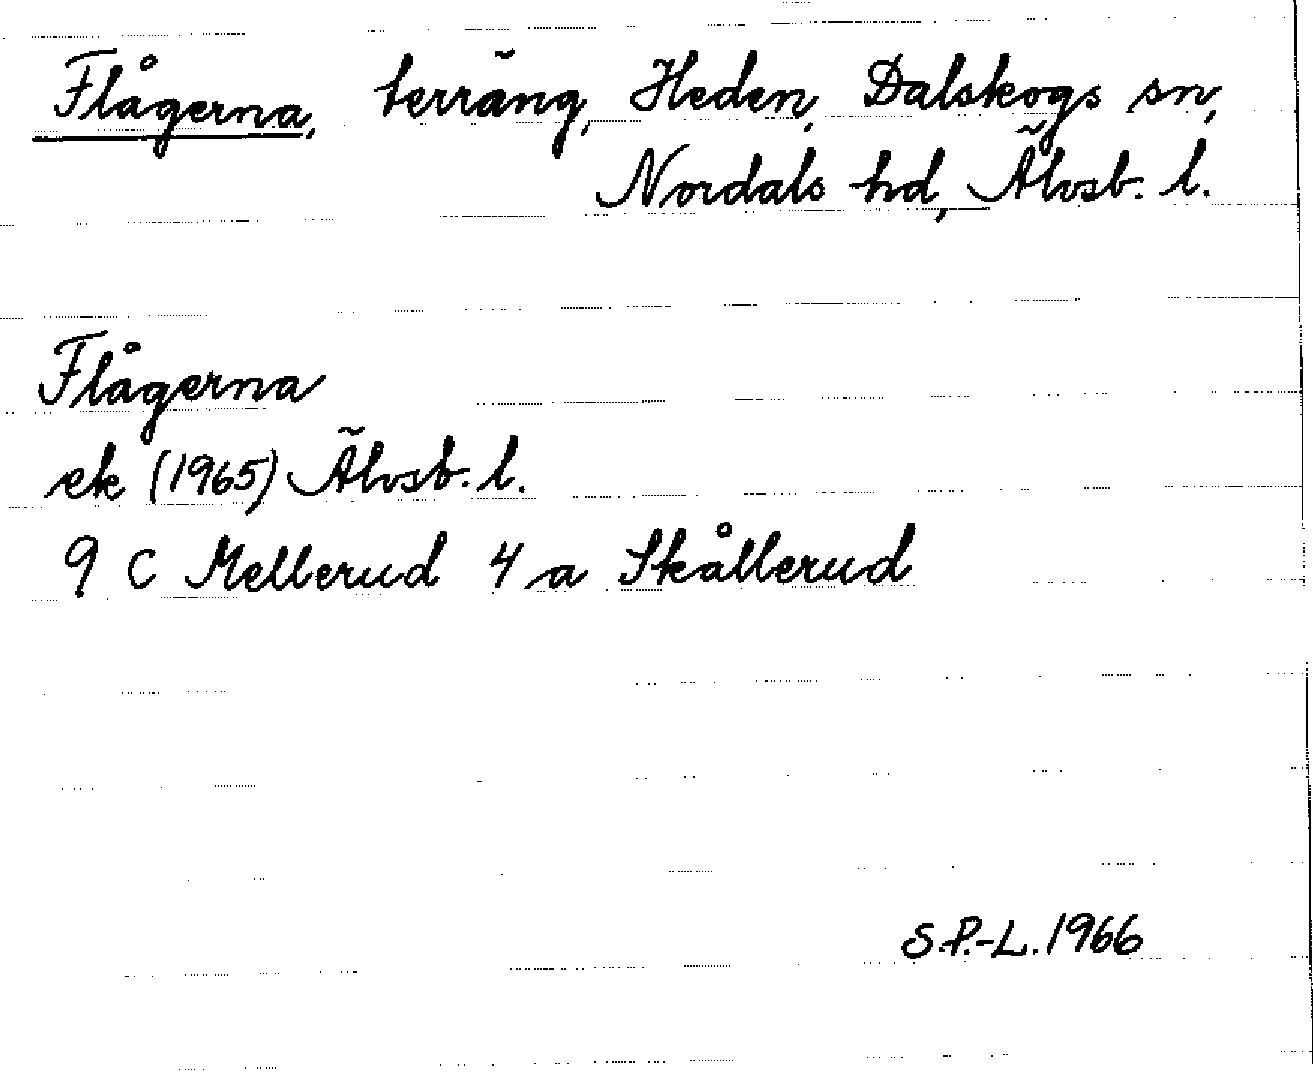 Flågerna, terräng, Heden, Dalskogs sn,
Nordals hd, Älvsb. l.
Flågerna
ek (1965) Älvsb. l.
9 C Mellerud 4 a Skållerud
S.P.-L. 1966